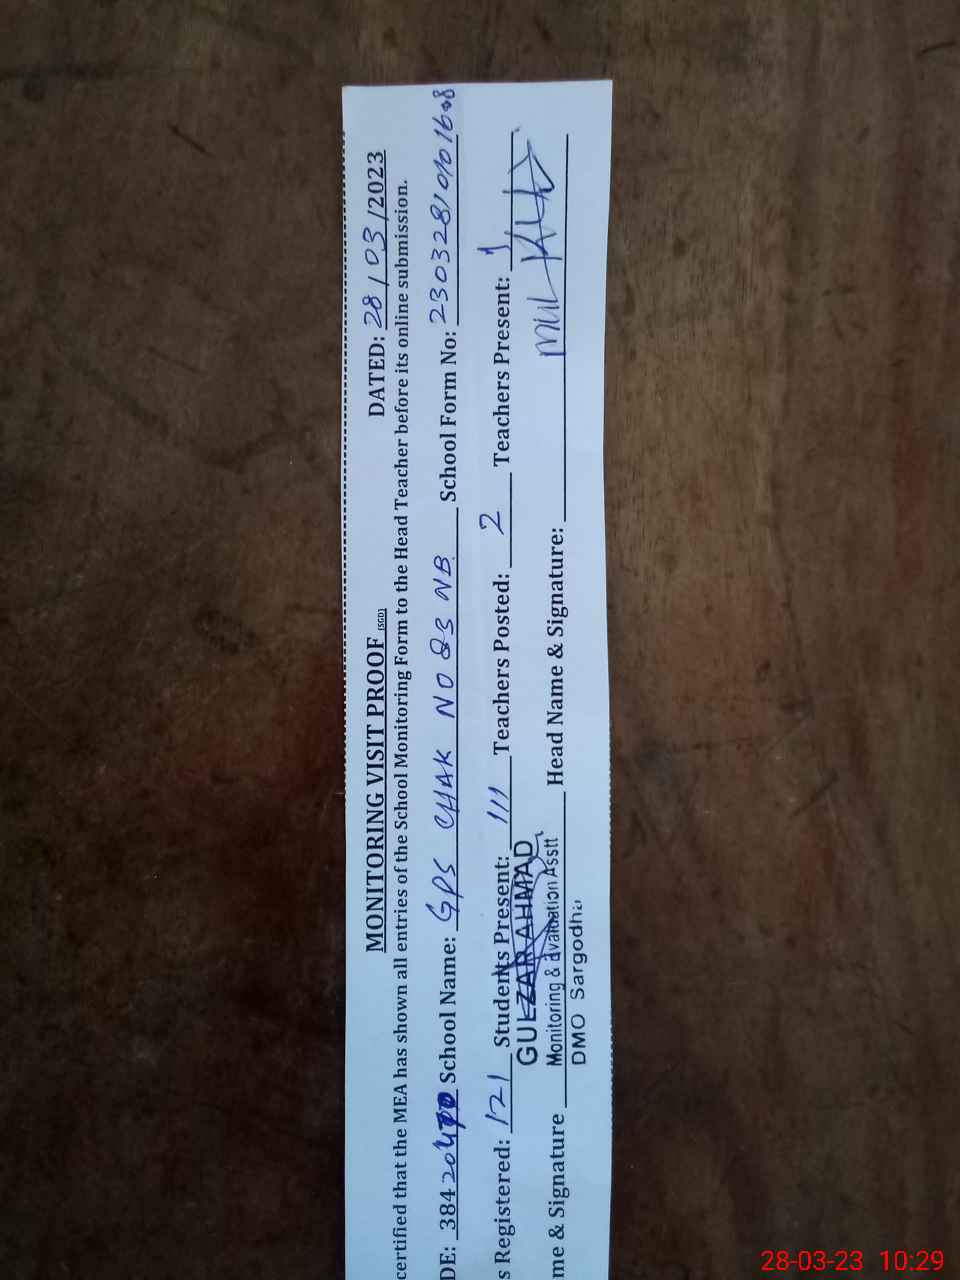 MONITORING VISIT PROOF (SGD) DATED: 28/03/2023
certified that the MEA has shown all entries of the School Monitoring Form to the Head Teacher before its online submission.
DE: 384 School Name: GPS CHAK NO 83 NB School Form No: 230328101
s Registered: 121 Students Present: 111 Teachers Posted: 2 Teachers Present: 1
GULZAR AHMAD
me & Signature Monitoring & Evaluation Asstt Head Name & Signature:
DMO Sargodha
28-03-23 10:29